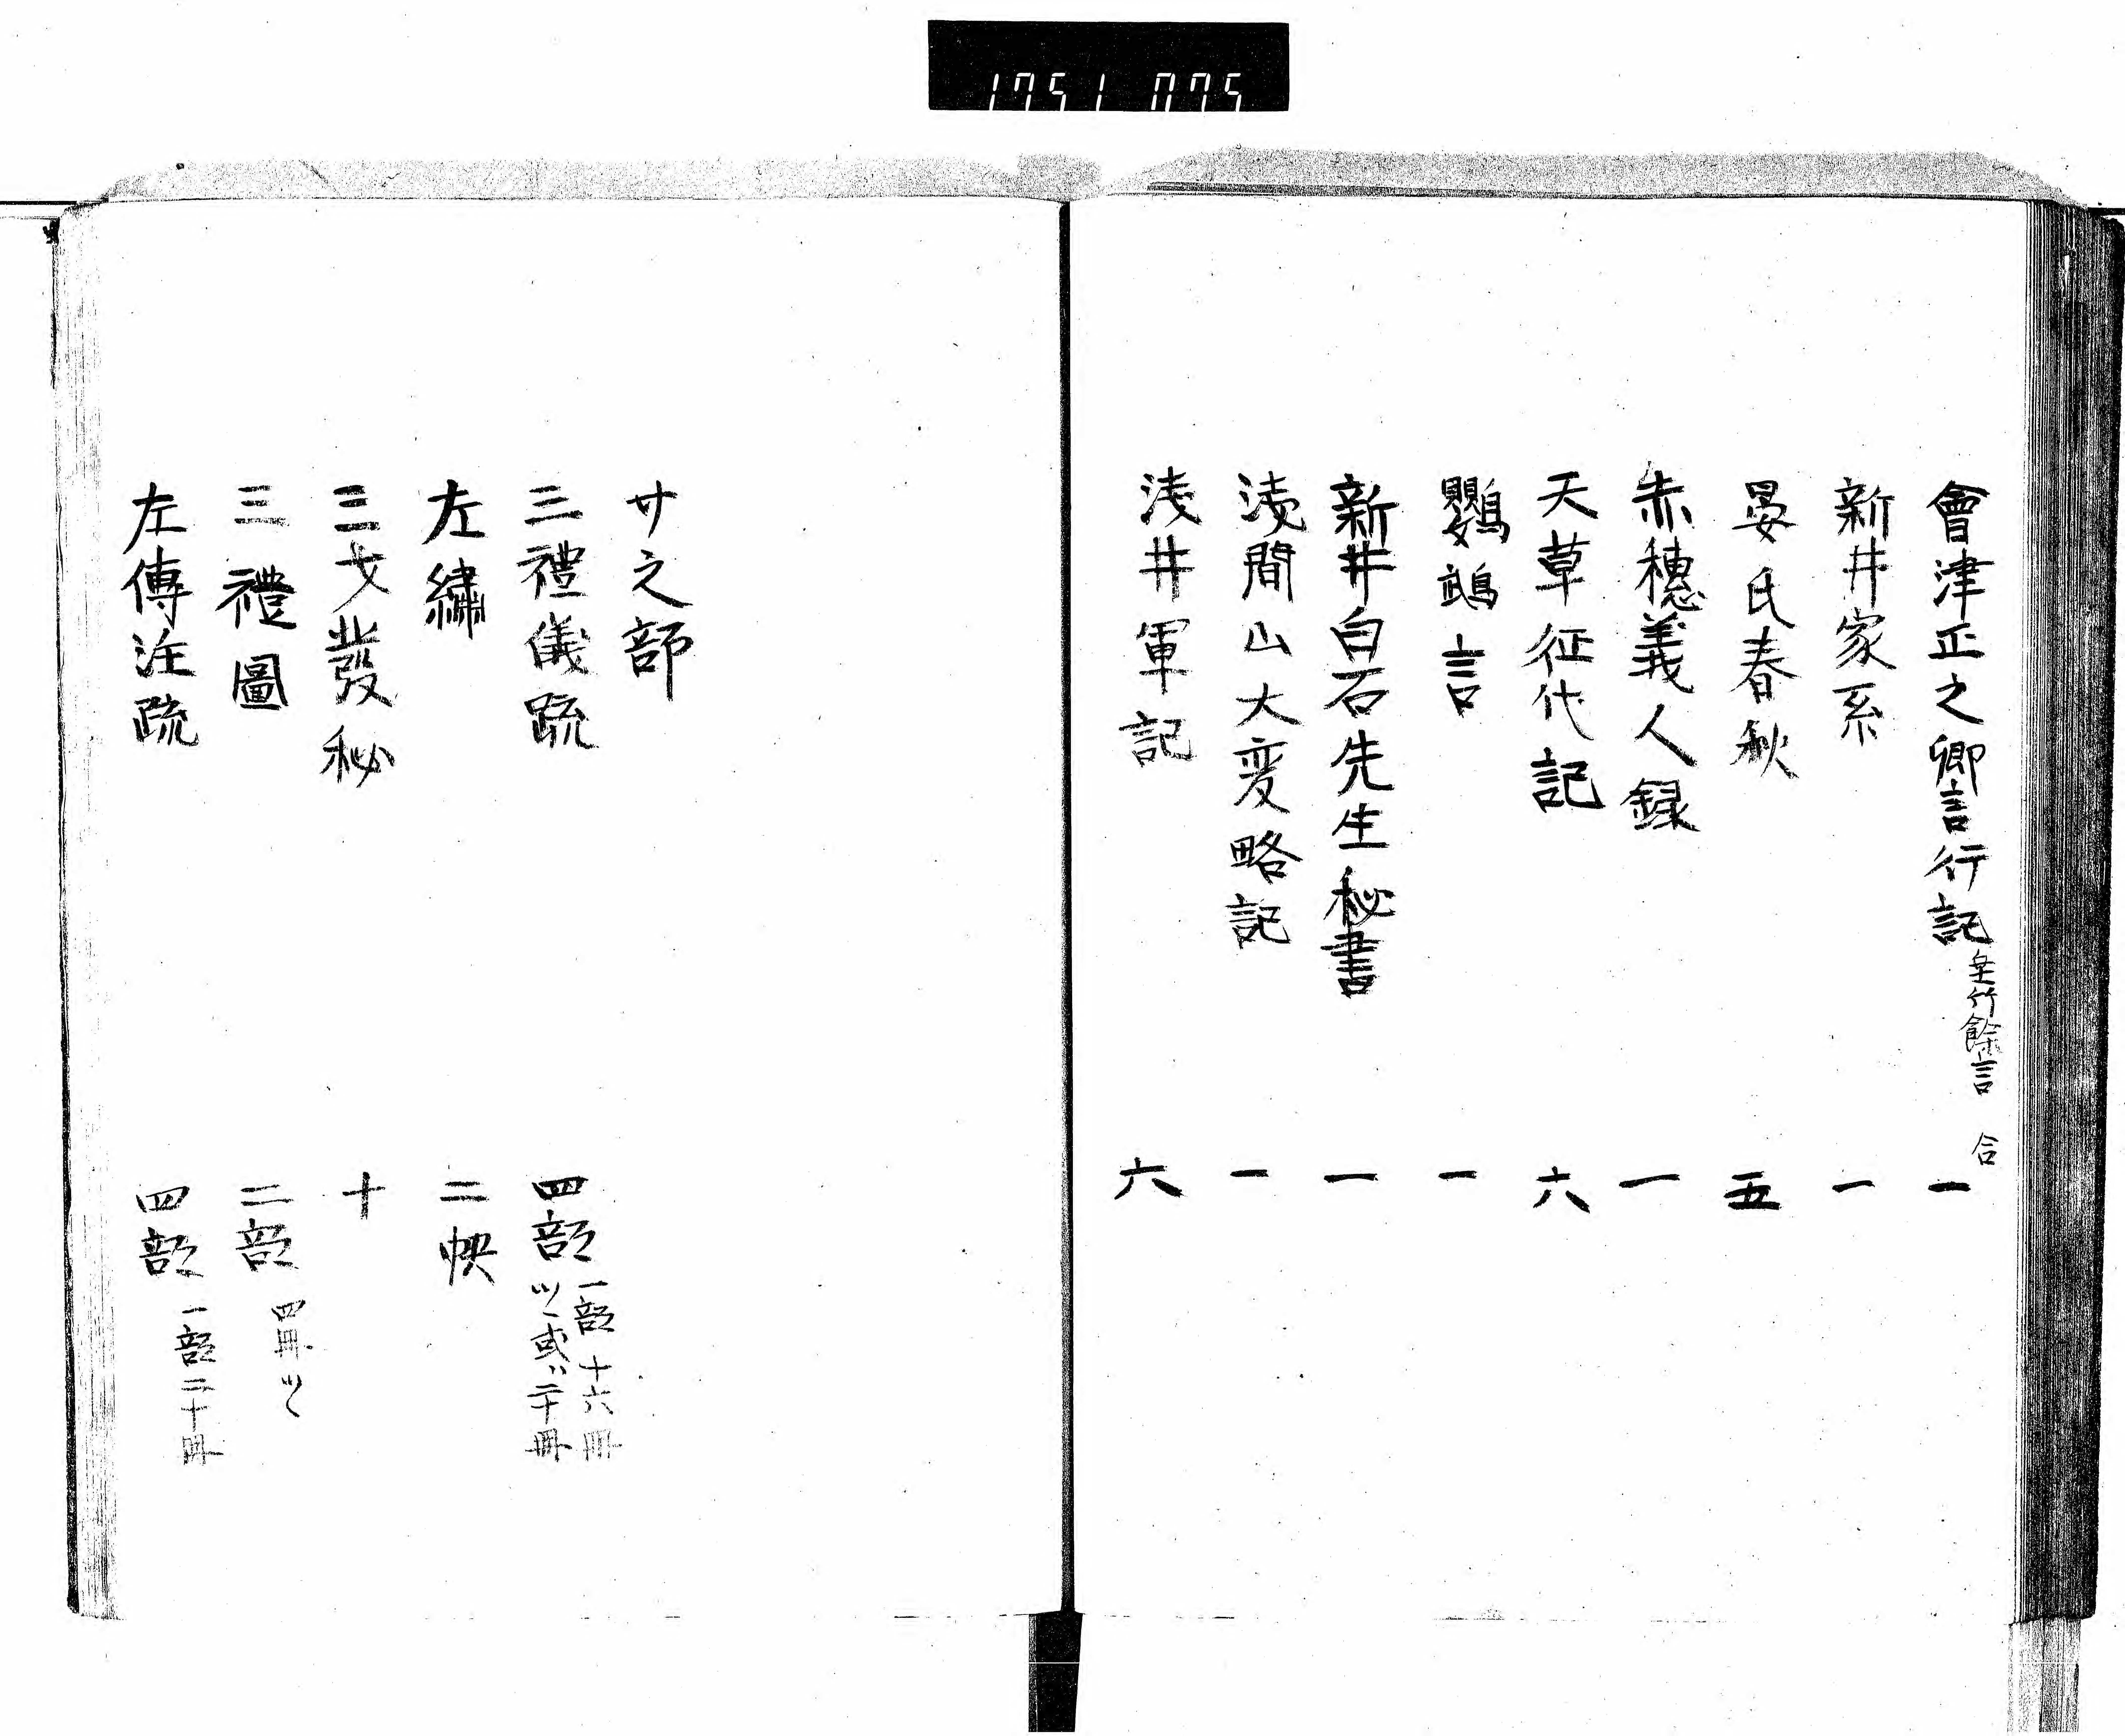 1751 075
會津正之卿言行記 垂竹餘言 合 一
新井家系 一
晏氏春秋 五
赤穗義人録 一
天草征伐記 六
鸚鵡言 一
新井白石先生秘書 一
浅間山大変略記 一
浅井軍記 六
サ之部
三禮儀疏 四部 一部十六冊
ツヽ或ハ二十冊
左繡 二帙
三才發秘 十
三禮圖 二部 四冊ツヽ
左傳注疏 四部 一部二十冊